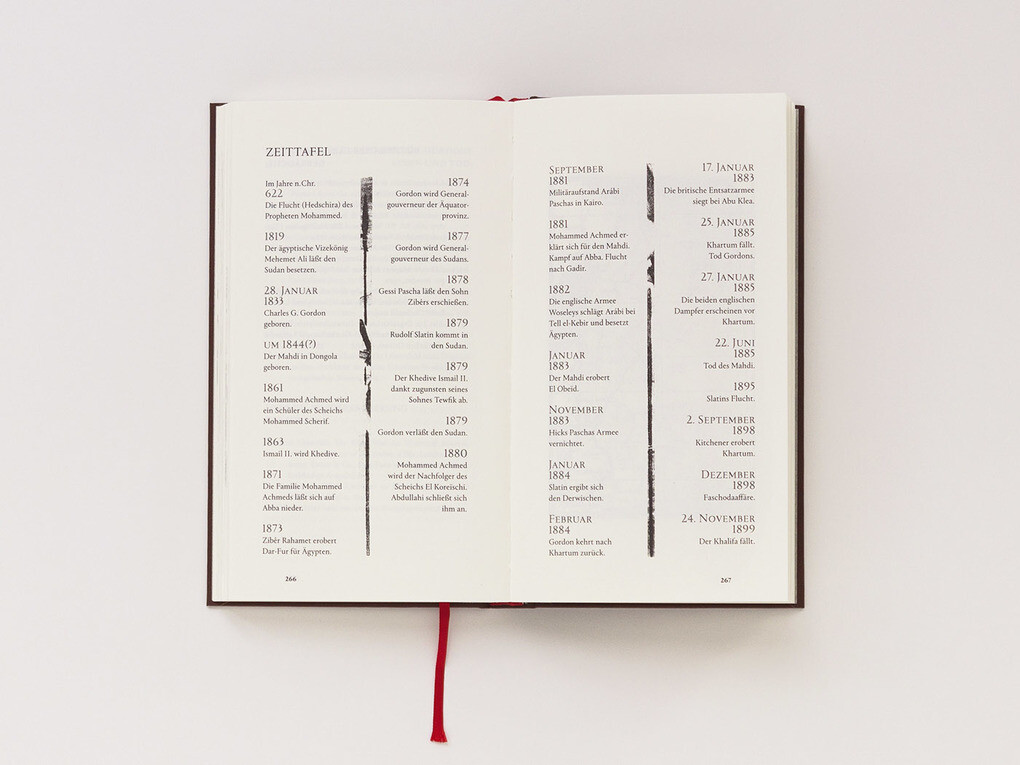 ZEITTAFEL
Im Jahre n.Chr.
622
Die Flucht (Hedschira) des
Propheten Mohammed.
1819
Der ägyptische Vizekönig
Mehemet Ali läßt den
Sudan besetzen.
28. JANUAR
1833
Charles G. Gordon
geboren.
UM 1844(?)
Der Mahdi in Dongola
geboren.
1861
Mohammed Achmed wird
ein Schüler des Scheichs
Mohammed Scherif.
1863
Ismail II. wird Khedive.
1871
Die Familie Mohammed
Achmeds läßt sich auf
Abba nieder.
1873
Zibêr Rahamet erobert
Dar-Fur für Ägypten.
1874
Gordon wird General-
gouverneur der Äquator-
provinz.
1877
Gordon wird General-
gouverneur des Sudans.
1878
Gessi Pascha läßt den Sohn
Zibêrs erschießen.
1879
Rudolf Slatin kommt in
den Sudan.
1879
Der Khedive Ismail II.
dankt zugunsten seines
Sohnes Tewfik ab.
1879
Gordon verläßt den Sudan.
1880
Mohammed Achmed
wird der Nachfolger des
Scheichs El Koreïschi.
Abdullahi schließt sich
ihm an.
266
SEPTEMBER
1881
Militäraufstand Arâbi
Paschas in Kairo.
1881
Mohammed Achmed er-
klärt sich für den Mahdi.
Kampf auf Abba. Flucht
nach Gadir.
1882
Die englische Armee
Woseleys schlägt Arâbi bei
Tell el-Kebir und besetzt
Ägypten.
JANUAR
1883
Der Mahdi erobert
El Obeïd.
NOVEMBER
1883
Hicks Paschas Armee
vernichtet.
JANUAR
1884
Slatin ergibt sich
den Derwischen.
FEBRUAR
1884
Gordon kehrt nach
Khartum zurück.
17. JANUAR
1883
Die britische Entsatzarmee
siegt bei Abu Klea.
25. JANUAR
1885
Khartum fällt.
Tod Gordons.
27. JANUAR
1885
Die beiden englischen
Dampfer erscheinen vor
Khartum.
22. JUNI
1885
Tod des Mahdi.
1895
Slatins Flucht.
2. SEPTEMBER
1898
Kitchener erobert
Khartum.
DEZEMBER
1898
Faschodaaffäre.
24. NOVEMBER
1899
Der Khalifa fällt.
267